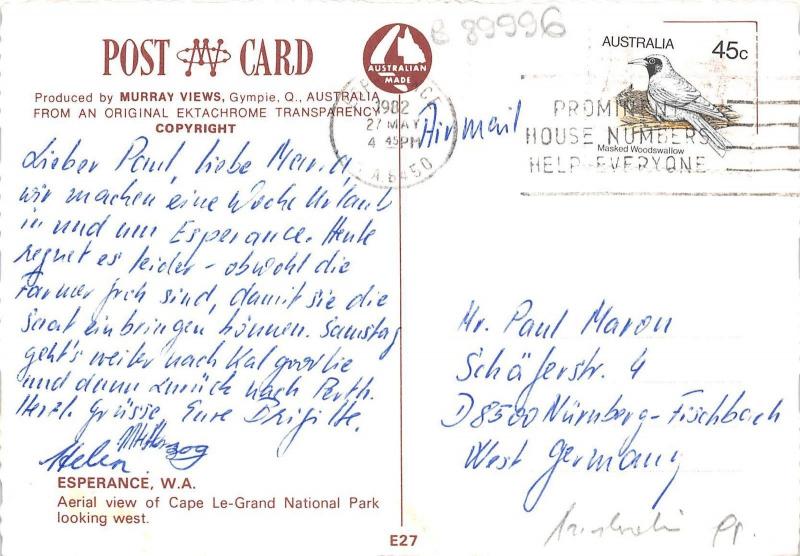 POST CARD
AUSTRALIAN
MADE
B 89996
AUSTRALIA 45c
Masked Woodswallow
Produced by MURRAY VIEWS, Gympie, Q., AUSTRALIA
FROM AN ORIGINAL EKTACHROME TRANSPARENCY
COPYRIGHT
1982
27 MAY
4 45PM
W.A. 6450
PROMINENT
HOUSE NUMBERS
HELP EVERYONE
Airmail
Lieber Paul, liebe Marill,
wir machen eine Woche Urlaub
in und um Esperance. Heute
regnet es leider - obwohl die
Farmer froh sind, damit sie die
Saat einbringen können. Samstag
geht's weiter nach Kalgoorlie
und dann zurück nach Perth.
Herzl. Grüsse, Eure Brigitte.
Helen
Mr. Paul Maron
Schäferstr. 4
D8500 Nürnberg-Fischbach
West Germany
ESPERANCE, W.A.
Aerial view of Cape Le-Grand National Park
looking west.
E27
Australien